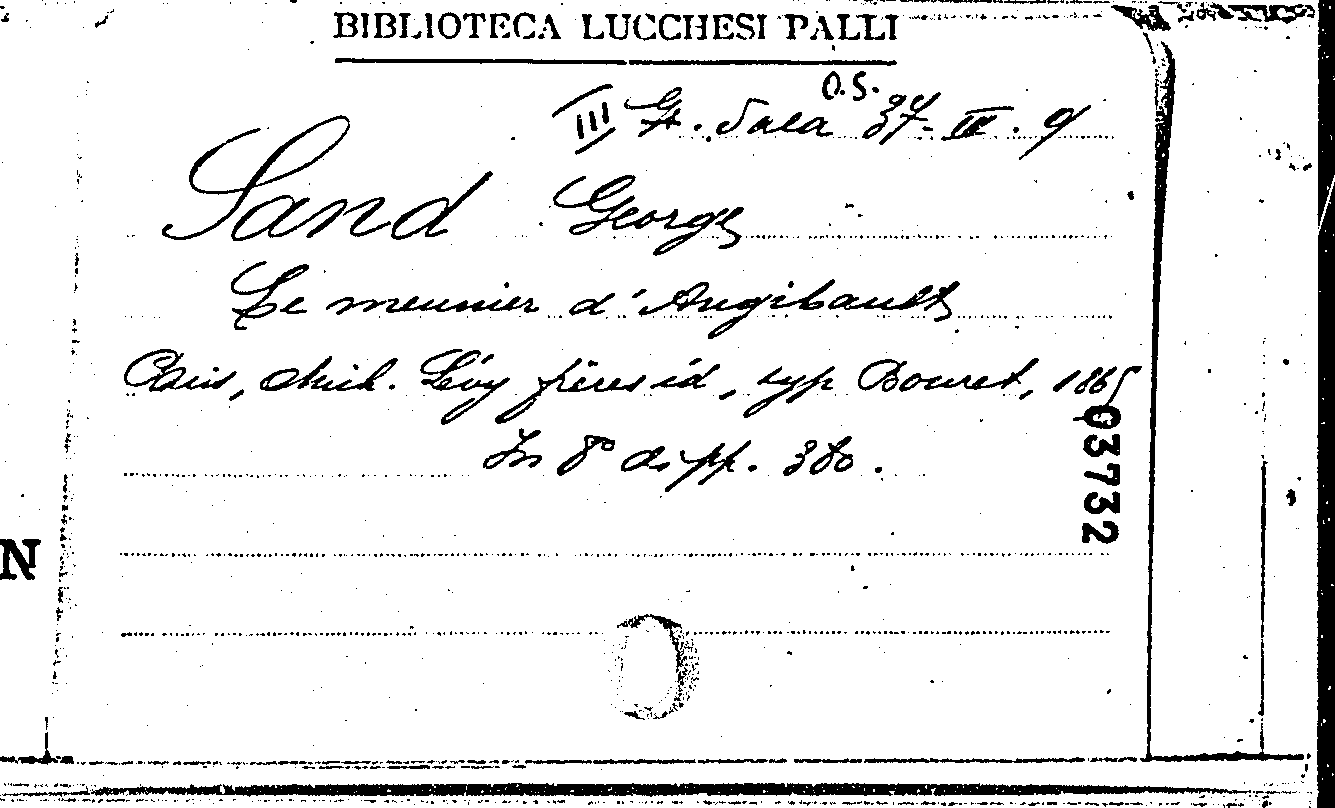 BIBLIOTECA LUCCHESI PALLI
O.S.
III Gr. Sala 37-III. 9
Sand George
Le meunier d'Angibault
Paris, Mich. Lévy frères éd, typ Bouret, 1865
In 8° di pp. 380.
03732
N